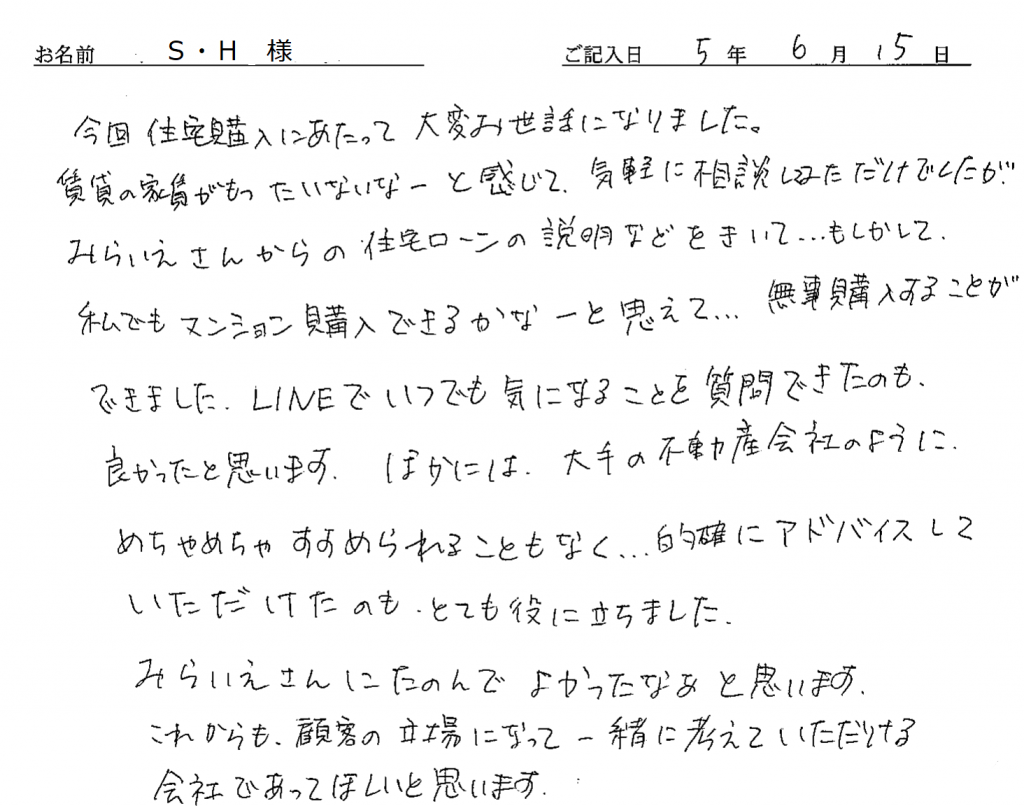 お名前 S・H 様 ご記入日 5年 6月 15日
今回 住宅購入にあたって 大変お世話になりました。
賃貸の家賃がもったいないなーと感じて、気軽に相談してみただけでしたが、
みらいえさんからの住宅ローンの説明などをきいて…もしかして、
私でもマンション購入できるかなーと思えて… 無事購入することが
できました。LINEでいつでも気になることを質問できたのも、
良かったと思います。ほかには、大手の不動産会社のように、
めちゃめちゃすすめられることもなく…的確にアドバイスして
いただけたのも、とても役に立ちました。
みらいえさんにたのんでよかったなぁと思います。
これからも、顧客の立場になって一緒に考えていただける
会社であってほしいと思います。